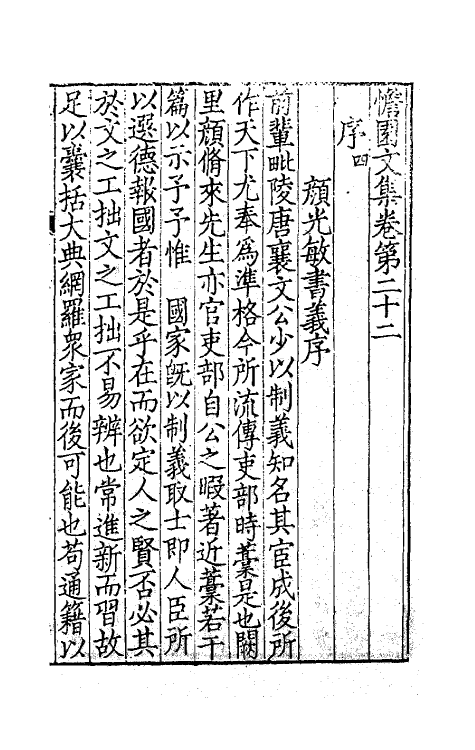 憺園文集卷第二十二
序四
顏光敏書義序
前輩毗陵唐襄文公少以制義知名其宦成後所
作天下尤奉爲準格今所流傳吏部時藁是也闕
里顏脩來先生亦官吏部自公之暇著近藁若干
篇以示予予惟 國家旣以制義取士即人臣所
以選德報國者於是乎在而欲定人之賢否必其
於文之工拙文之工拙不易辨也常進新而習故
足以囊括大典網羅衆家而後可能也苟通籍以